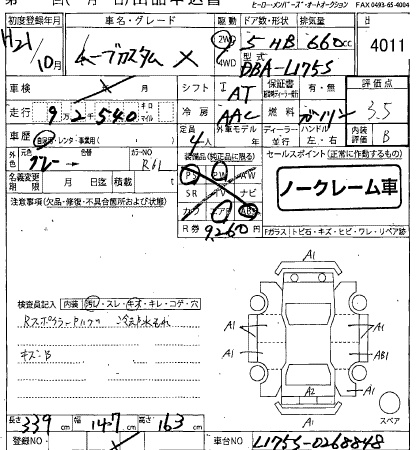 ヒーロー・メンバーズ・オートオークション FAX 0493-65-4004
初度登録年月 車名・グレード 駆動 ドア数・形状 排気量
H21 10月 ムーヴカスタム X 2WD 4WD 5 HB 660cc 4011
型式 DBA-L175S
車検 年 月 シフト I AT 保証書 評価点 3.5
走行 9万2千540 キロ マイル 冷房 AAC 燃料 ガソリン
車歴 自家用・レンタ・事業用 定員 4人 外車モデル 年式 ディーラー 並行 ハンドル 左・右 内装評価 B
外色 元色 グレー 色替 カラーNO R61
装備品(純正品に限る) セールスポイント(正常に作動するもの)
名義変更期限 月 日迄 積載 t
PS PW AW
SR TV ナビ
カワ エアB ABS
ノークレーム車
R券 9,260円
注意事項(欠品・修復・不具合箇所および状態)
Fガラス トビ石・キズ・ヒビ・ワレ・リペア跡
検査員記入 内装 汚レ・スレ・キズ・キレ・コゲ・穴
キズB
A1 A1 A1 A1 A1 A1 AB1 A1 A1 A2
スペア
長さ 339cm 幅 147cm 高さ 163cm
登録NO 車台NO L175S-0268848